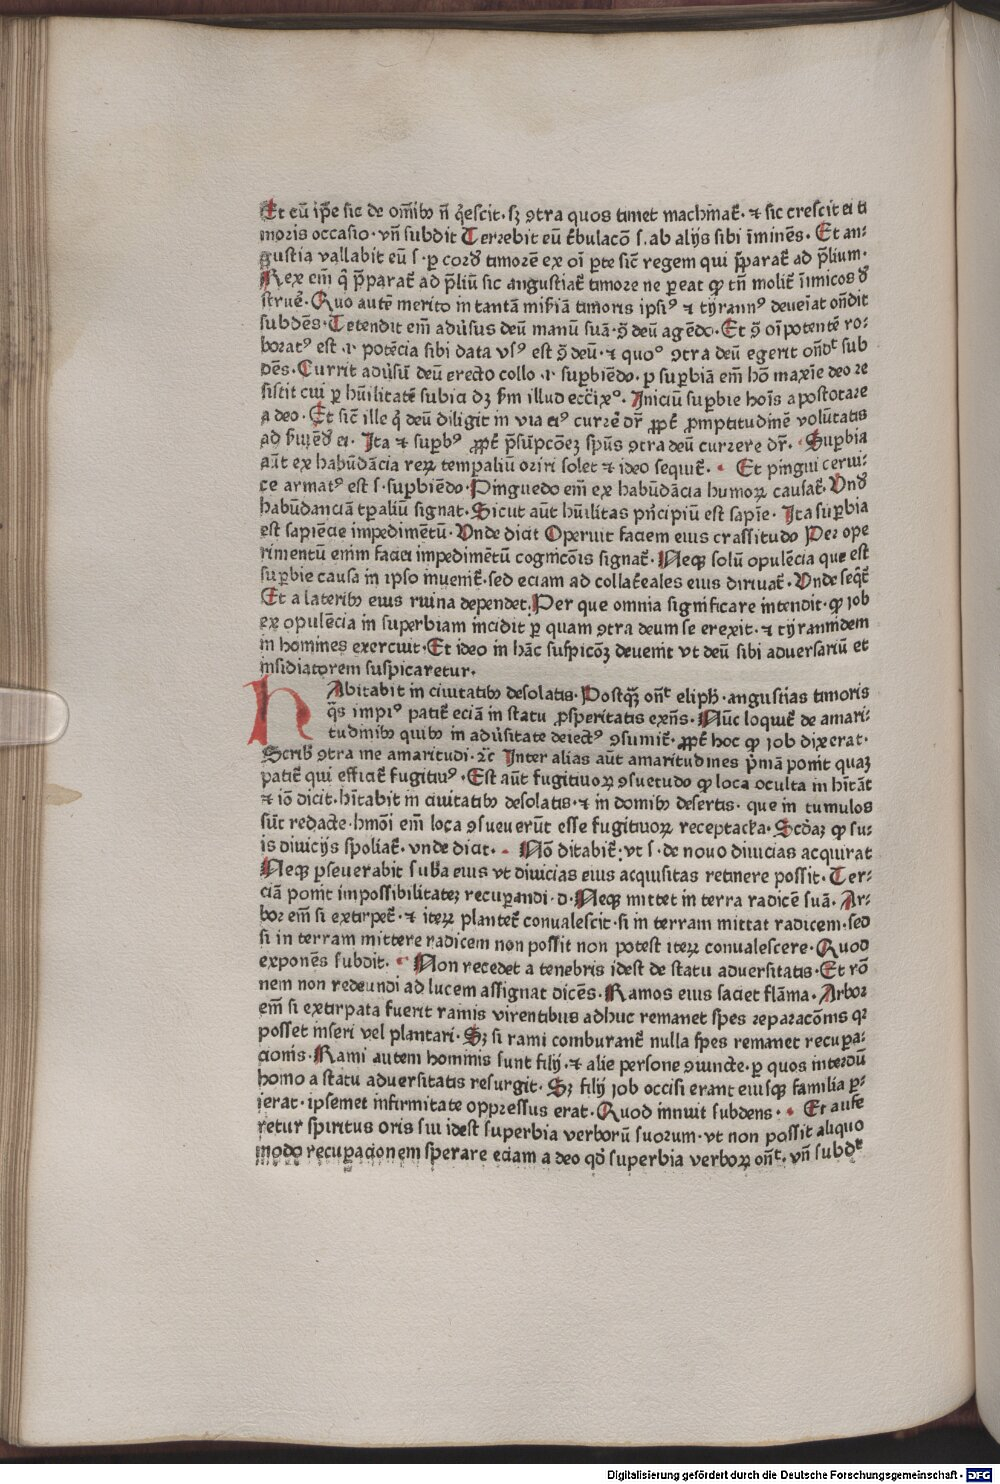 Et eū ip̄e sic de om̄ibꝰ n̄ q̄escit· sꝫ ꝯtra quos timet machīat᷑· ⁊ sic crescit ei ti
moris occasio· vn̄ subdit Terrebit eū t᷑bulacō s. ab alijs sibi īminēs· Et an⸗
gustia vallabit eū s· ꝑ cord᷑ timorē ex oī ꝑte sic̄ regem qui p̄parat᷑ ad p̄lium·
Rex em̄ q̄ p̄parat᷑ ad p̄liū sic angustiat᷑ timore ne ꝑeat ꝙ tn̄ molit᷑ īimicos d᷑
strue᷑· Quo autē merito in tantā mis̄iā timoris ipsiꝰ ⁊ tyrannꝰ deueīat on̄dit
subdēs· Tetendit em̄ adūsus deū manū suā· ꝯ̄ deū agēdo· Et ꝯ̄ oīpotentē ro⸗
boratꝰ est ·i· potēcia sibi data vsꝰ est ꝯ̄ deū· ⁊ quoº ꝯtra deū egerit on̄dᵗ sub
dēs· Currit adūsū deū erecto collo ·i· suꝑbiēdo· ꝑ suꝑbiā em̄ hō maxīe deo re
sistit cui ꝑ hūilitatē subici dꝫ ẜm illud ecc̄ixº· Iniciū suꝑbie hoīs apostotare
a deo· Et sic̄ ille q̄ deū diligit in via eiꝰ curre᷑ dr̄ ꝓpt᷑ ꝓmptitudinē volūtatis
ad ẜuiēd᷑ ei· Ita ⁊ suꝑbꝰ ꝓpt᷑ p̄sūpcōeꝫ spūs ꝯtra deū currere dr̄· Suꝑbia
aūt ex habūdācia reꝝ temꝑaliū oriri solet ⁊ ideo sequit᷑· Et pingui cerui⸗
ce armatꝰ est s· suꝑbiēdo· Pinguedo em̄ ex habūdācia humoꝝ causat᷑· Vnd᷑
habūdanciā tꝑaliū signat· Sicut aūt hūilitas pn̄cipiū est sapīe· Ita suꝑbia
est sapiēcie impedimētū· Vnde dicit Operuit faciem eius crassitudo Per ope
rimentū enim faciei impedimētū cognicōis signat᷑· Neqꝫ solū opulēcia que est
suꝑbie causa in ipso inuenit᷑· sed eciam ad collat᷑eales eius diriuat᷑· Vnde seq̄t᷑
Et a lateribꝰ eius ruina dependet. Per que omnia significare intendit· ꝙ iob
ex opulēcia in superbiam incidit ꝑ quam ꝯtra deum se erexit· ⁊ tyrannidem
in homines exercuit· Et ideo in hāc suspicōꝫ deuenit vt deū sibi aduersariū et
insidiatorem suspicaretur·
HAbitabit in ciuitatibꝰ desolatis· Postqꝫ̄ on̄t eliph̄· angustias timoris
q̄s impiꝰ patit᷑ eciā in statu ꝓsperitatis exn̄s· Nūc loquit᷑ de amari⸗
tudinibꝰ quibꝰ in adūsitate deiectꝰ ꝯsumit᷑· ꝓpt᷑ hoc ꝙ iob dixerat·
Scribꝰ ꝯtra me amaritudi· ⁊c̄ Inter alias aūt amaritudines p̄miā ponit quaꝫ
patit᷑ qui efficit᷑ fugitiuꝰ· Est aūt fugitiuoꝝ ꝯsuetudo ꝙ loca oculta in hīt̄āt
⁊ iō dicit· hīt̄abit in ciuitatibꝰ desolatis· ⁊ in domibꝰ desertis· que in tumulos
sūt redacte· hmōi em̄ loca ꝯsueuerūt esse fugitiuoꝝ receptacl̄a· Scd̄aꝫ ꝙ su⸗
is diuicijs spoliat᷑· vnde dicit· Nō ditabit᷑· vt s· de nouo diuicias acquirat
Neqꝫ ꝑseuerabit sub̄a eius vt diuicias eius acquisitas retinere possit· Ter⸗
ciā ponit impossibilitateꝫ recuꝑandi· d· Neqꝫ mittet in terra radicē suā· Ar⸗
bor em̄ si extirpet᷑· ⁊ iterꝝ plantet᷑ conualescit· si in terram mittat radicem· sed
si in terram mittere radicem non possit non potest iterꝝ conualescere· Quod
exponēs subdit· Non recedet a tenebris idest de statu aduersitatis· Et rō
nem non redeundi ad lucem assignat dicēs· Ramos eius saciet flāma· Arbor
em̄ si extirpata fuerit ramis virentibus adhuc remanet spes reparacōnis qꝛ
posset inseri vel plantari· Sꝫ si rami comburant᷑ nulla spes remanet recuꝑa⸗
cionis· Rami autem hominis sunt filij· ⁊ alie persone ꝯiuncte· ꝑ quos interdū
homo a statu aduersitatis resurgit· Sꝫ filij iob occisi erant eiusqꝫ familia ꝑ⸗
ierat· ipsemet infirmitate oppressus erat· Quod innuit subdens· Et aufe
retur spiritus oris sui idest superbia verborū suorum· vt non possit aliquo
modo recuꝑacionem sperare eciam a deo qd̄ superbia verboꝝ on̄t· vn̄ subdᵗ
Digitalisierung gefördert durch die Deutsche Forschungsgemeinschaft - DFG